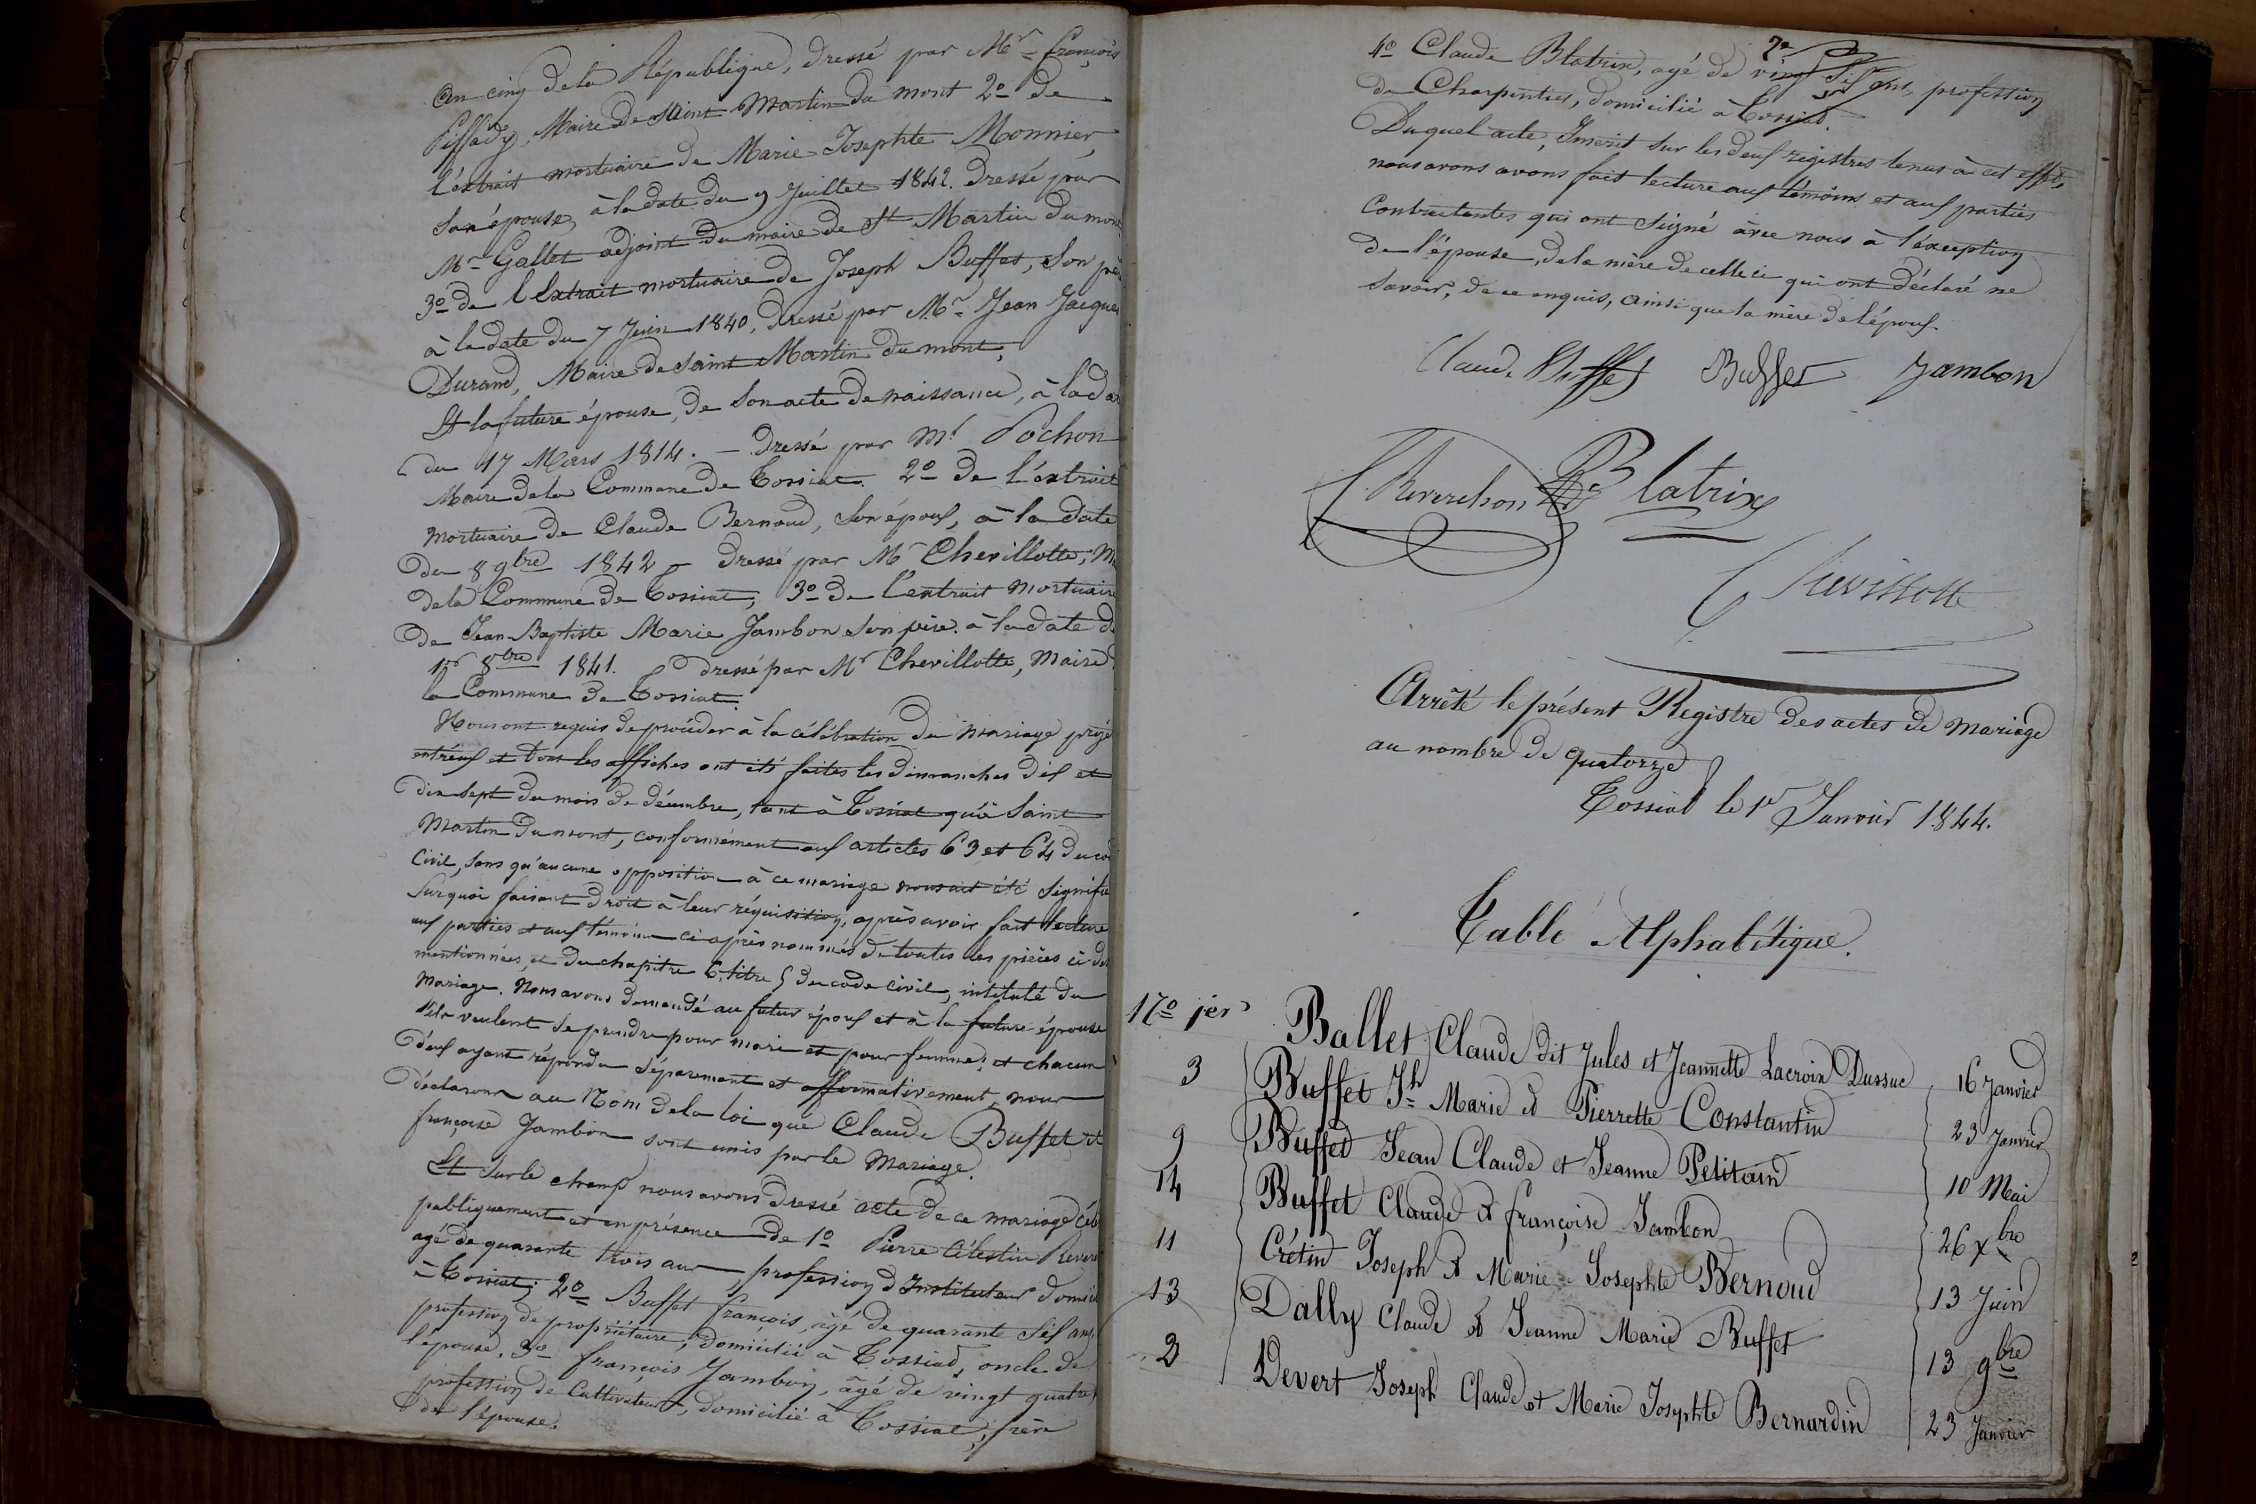 An cinq de la République, dressé par Mr François
Piffady, Maire de Saint Martin du mont 2o de
l'éxtrait mortuaire de Marie Josephte Monnier,
son épouse, à la date du 9 Juillet 1842. dressé par
Mr Gallet adjoint du maire de St Martin du mont
3o de l'Extrait mortuaire de Joseph Buffet, son père
à la date du 7 Juin 1840, dressé par Mr Jean Jacques
Durand, Maire de Saint Martin du mont,
Et la future épouse, de son acte de naissance, à la date
du 17 Mars 1814. — dressé par Mr Pochon
Maire de la Commune de Tossiat. 2o de l'éxtrait
mortuaire de Claude Bernoud, son épouf, à la date
du 8 9bre 1842 — dressé par Mr Chevillotte, M
de la Commune de Tossiat, 3o de l'extrait mortuaire
de Jean Baptiste Marie Jambon son père. à la date d
1er 8bre 1841. dressé par Mr Chevillotte, Maire d
la Commune de Tossiat.
Nous ont requis de procéder à la célébration du mariage projé
entréuf et dont les affiches ont été faites les dimanches dif et
dix sept du mois de décembre, tant à Tossiat qu'à Saint
Martin du mont, conformément auf articles 63 et 64 du cod
Civil, sans qu'aucune opposition à ce mariage nous ait été signifié
Surquoi faisant droit à leur réquisition, après avoir fait lecture
auf parties et auf témoins ci après nommés de toutes les pièces ci des
mentionnées, et du chapitre 6, titre 5 du code civil, intitulé du
Mariage. Nous avons demandé au futur épouf et à la future épouse
s'ils veulent se prendre pour mari et pour femme; et chacun
d'euf ayant répondu séparement et affirmativement, nous
déclarons au Nom de la loi que Claude Buffet et
françoise Jambon sont unis par le Mariage.
Et sur le champ nous avons dressé acte de ce mariage célé
publiquement et en présence de 1o Pierre Célestin Rever
agé de quarante trois ans, profession d'Instituteur domicil
à Tossiat; 2o Buffet françois, âgé de quarante sif ans,
profession de propriétaire, domicilié à Tossiat, oncle de
l'épouse. 3o françois Jambon, âgé de vingt quatre
profession de Cultivateur, domicilié à Tossiat, frère
de l'épouse.
4o Claude Blatrix, agé de vingt sif ans, profession
de Charpentier, domicilié à Tossiat.
Duquel acte, Inscrit sur les deuf régistres tenus à cet effet,
nous avons avons fait lecture auf témoins et auf parties
Contractantes qui ont signé avec nous à l'éxception
de l'épouse, de la mère de celle ci qui ont déclaré ne
savoir, de ce enquis, ainsi que la mère de l'épouf.
Claude Buffet Buffet Jambon
C. Reverchon Blatrix
Chevillotte
Arrêté le présent Registre des actes de Mariage
au nombre de quatorze
Tossiat le 1er Janvier 1844.
Table Alphabétique.
No 1er Ballet Claude dit Jules et Jeannette Lacroix Dussuc 16 Janvier
3 Buffet Jh Marie et Pierrette Constantin 23 Janvier
9 Buffet Jean Claude et Jeanne Petitain 10 Mai
14 Buffet Claude et françoise Jambon 26 Xbre
11 Crétin Joseph et Marie Josephte Bernoud 13 Juin
13 Dally Claude et Jeanne Marie Buffet 13 9bre
2 Devert Joseph Claude et Marie Josephte Bernardin 23 Janvier